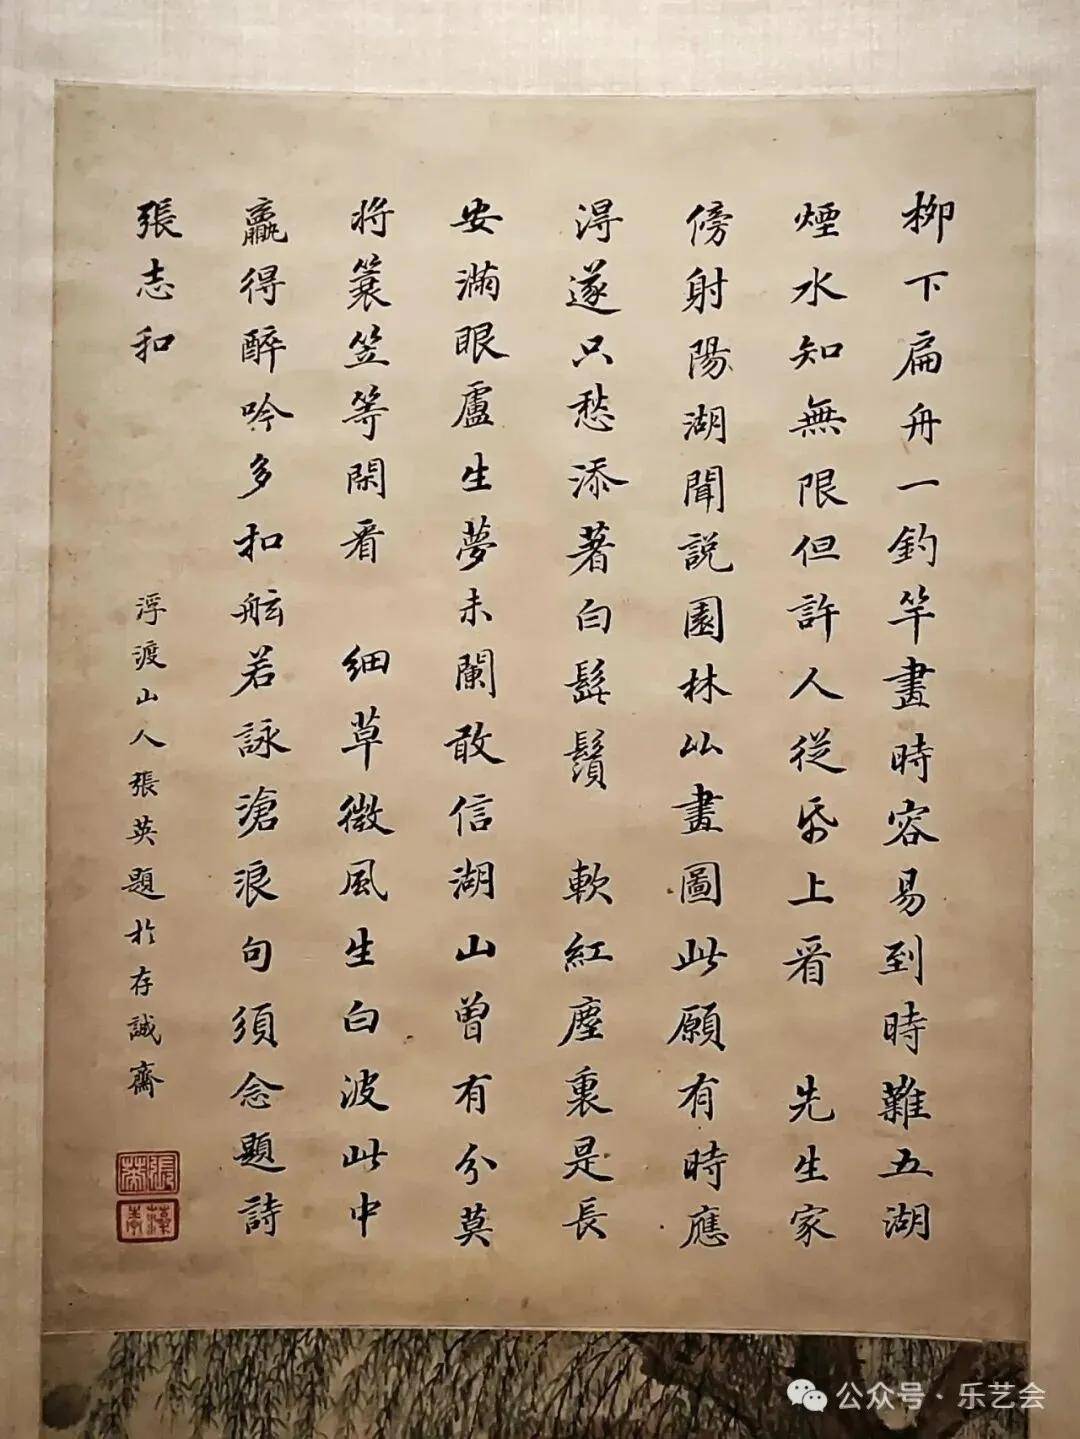 柳下扁舟一釣竿畫時容易到時難五湖
煙水知無限但許人從帋上看　先生家
傍射陽湖聞説園林似畫圖此願有時應
得遂只愁添著白髭鬚　軟紅塵裏是長
安滿眼盧生夢未闌敢信湖山曾有分莫
將簑笠等閑看　細草微風生白波此中
贏得醉吟多扣舷若詠滄浪句須念題詩
張志和
浮渡山人張英題於存誠齋
張英
公众号·乐艺会